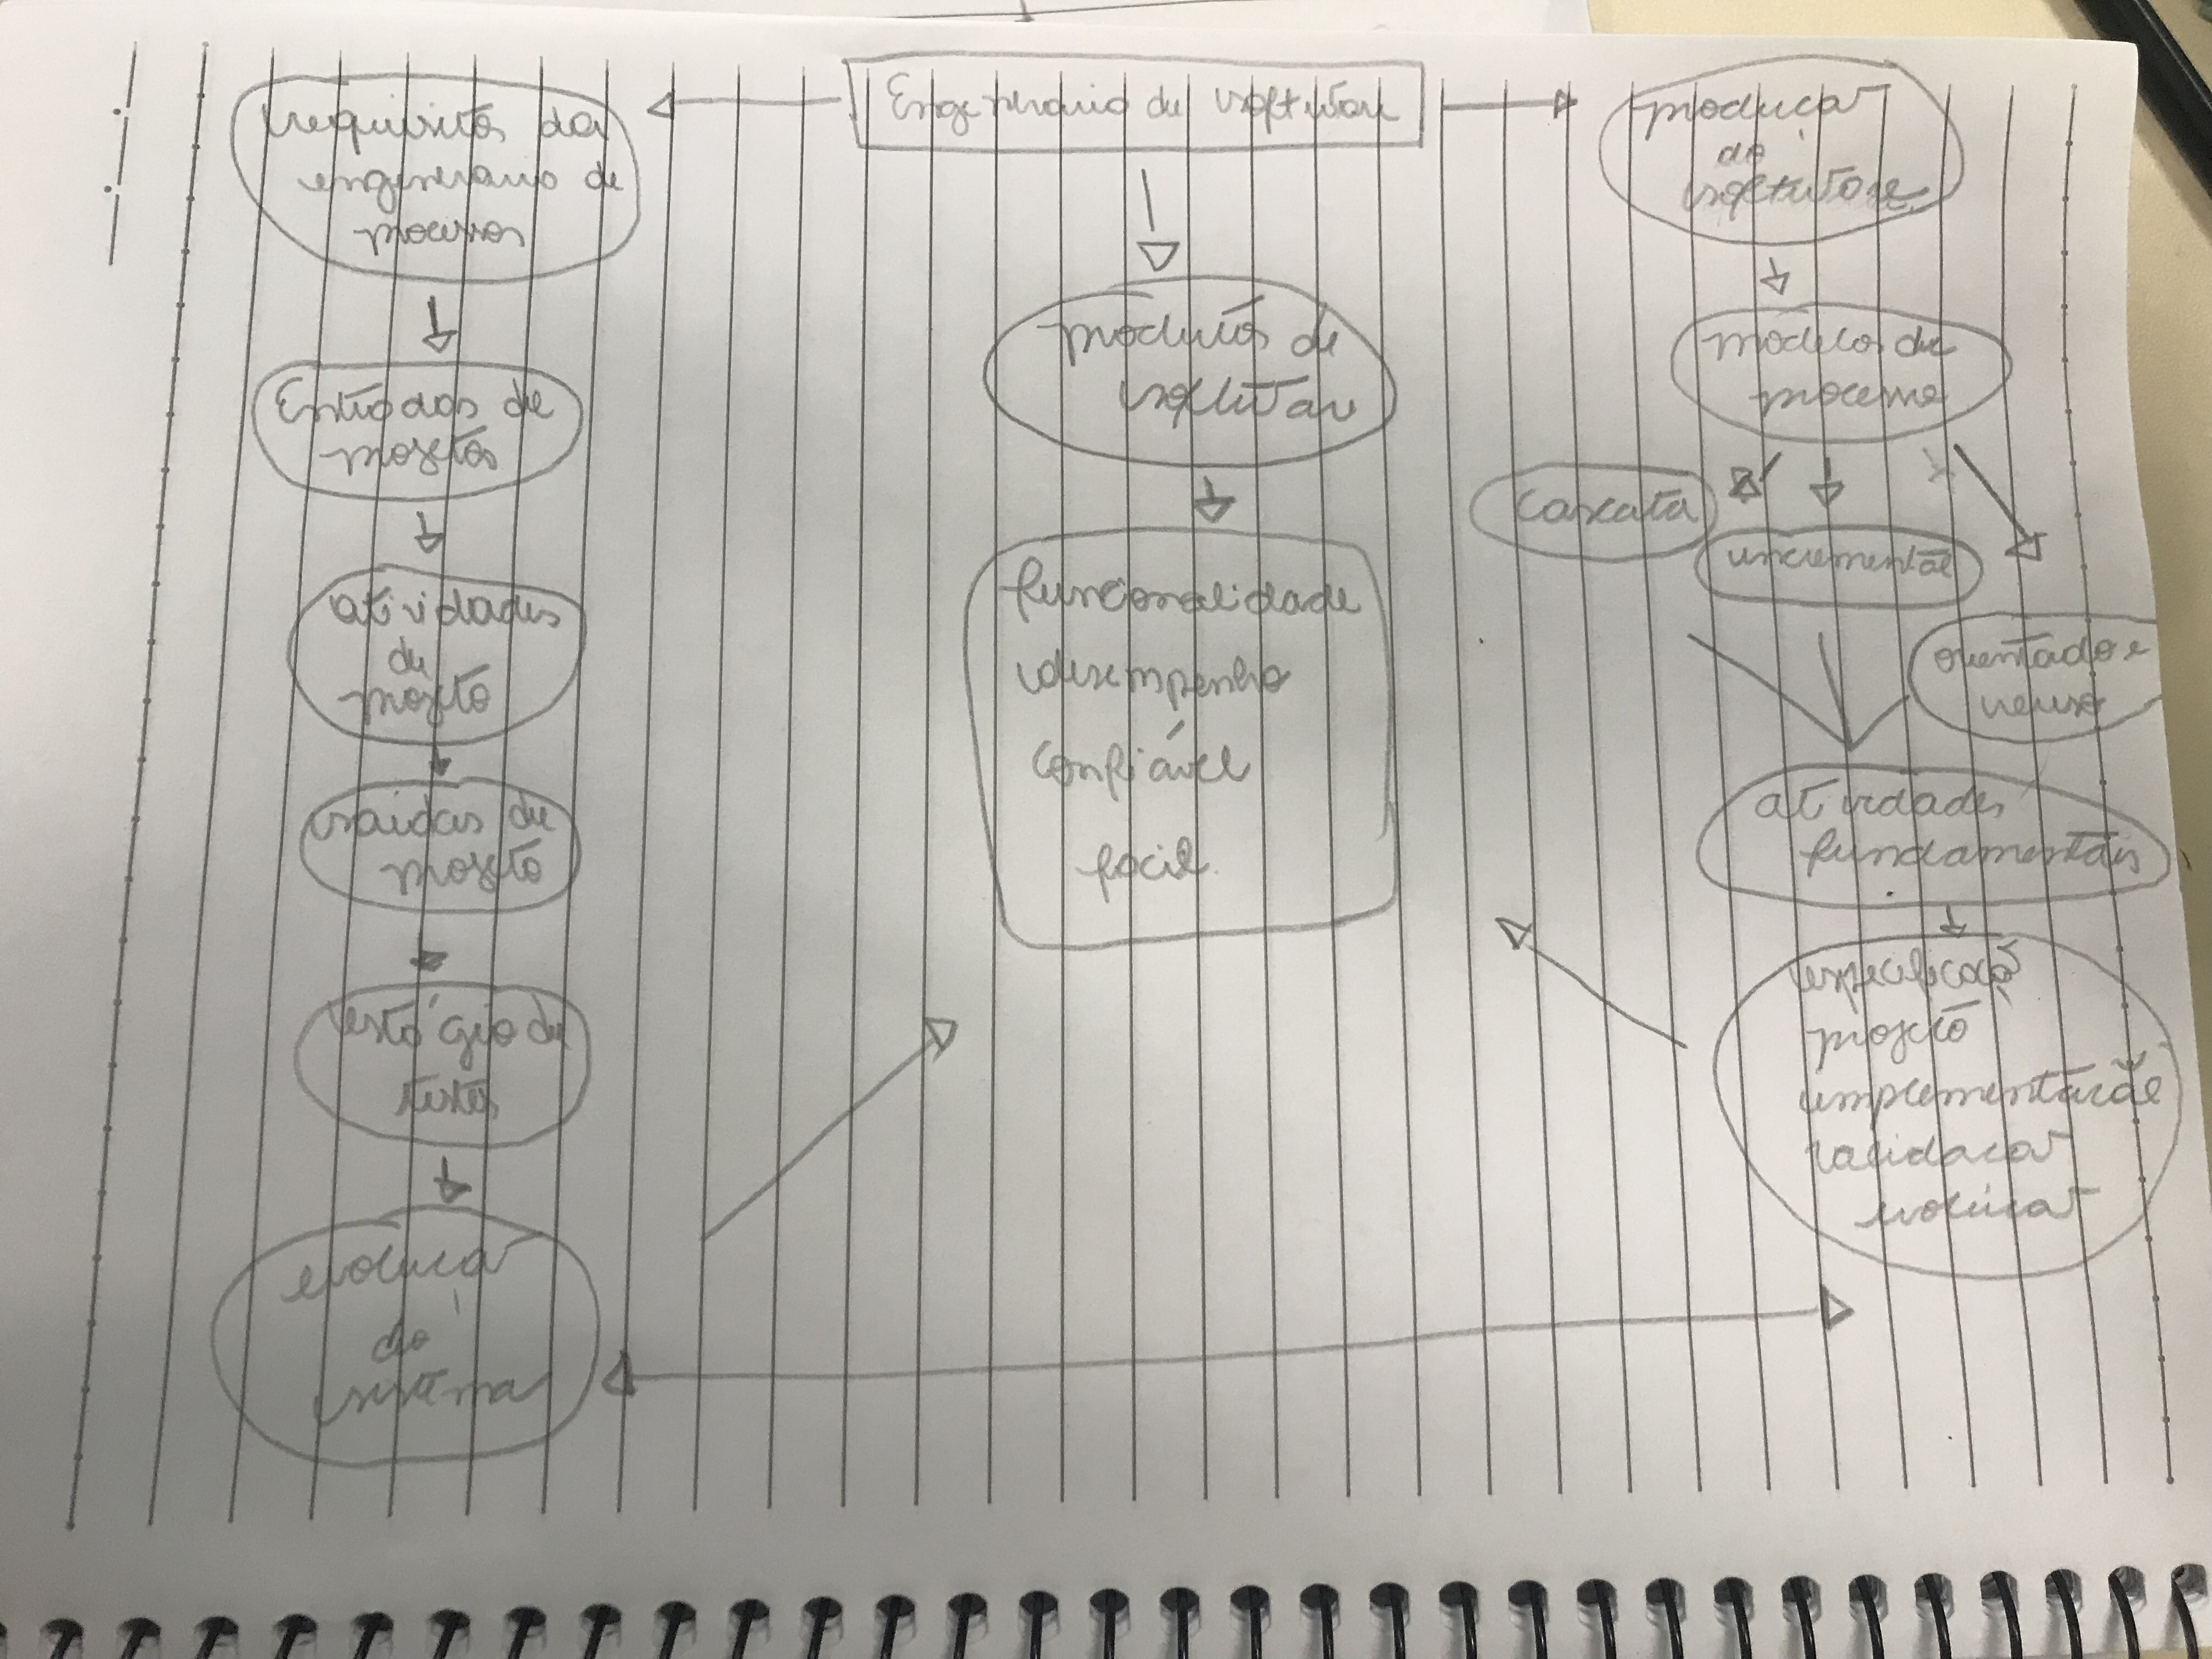 Engenharia de software
requisitos da
engenharia de
processos
Entradas de
projetos
atividades
de
projeto
saidas de
projeto
estágio de
testes
evolução
do
sistema
produtos de
software
funcionalidade
desempenho
confiável
fácil.
produção
do
software
modelos de
processo
cascata
incremental
orientado a
reuso
atividades
fundamentais
especificação
projeto
implementação
validação
evolução